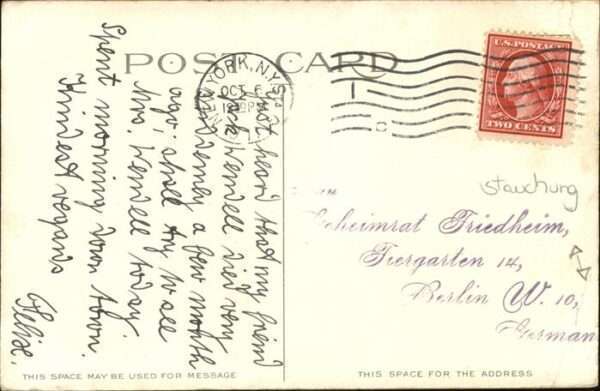 POST CARD
NEW YORK, N.Y.
OCT 6
U.S. POSTAGE
TWO CENTS
Just heard that my friend
Jack Wendell died very
suddenly a few month
ago, shall try to see
Mrs. Wendell today.
Spent morning down town.
Kindest regards
Felix.
Stauchung
Geheimrat Friedheim,
Tiergarten 14,
Berlin W. 10,
German
THIS SPACE MAY BE USED FOR MESSAGE
THIS SPACE FOR THE ADDRESS